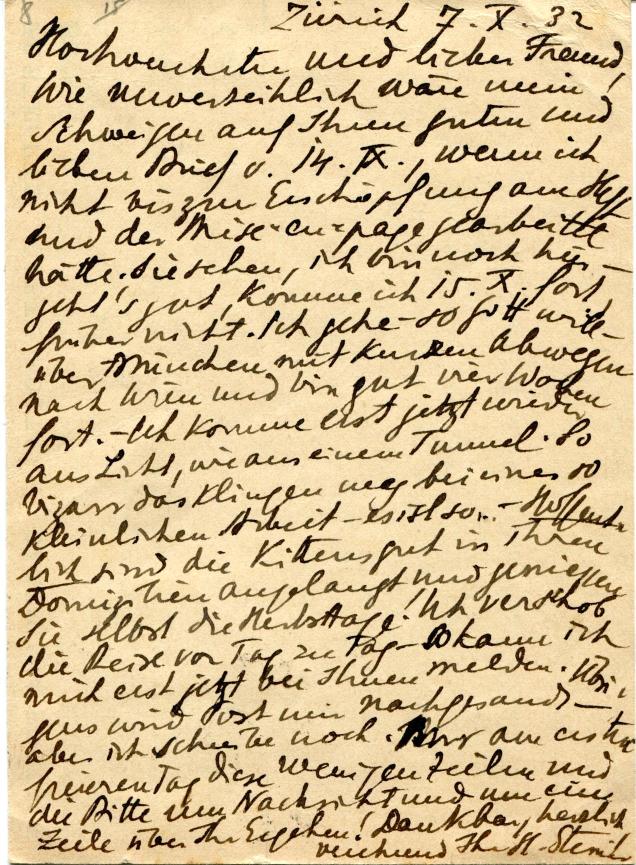 Zürich 7. X. 32
Hochverehrter und lieber Freund,
Wie unverzeihlich wäre mein
Schweigen auf Ihren guten und
lieben Brief v. 14. IX., wenn ich
nicht bis zur Erschöpfung am Heft
und der Mise-en-page gearbeitet
hätte. Sie sehen, ich bin noch hier –
geht's gut, komme ich 15. X. fort,
früher nicht. Ich gehe – so Gott will –
über München mit kurzen Abwegen
nach Wien und bin gut vier Wochen
fort. – Ich komme erst jetzt wieder
ans Licht, wie aus einem Tunnel. So
bizarr das klingen mag bei einer so
kleinlichen Arbeit – es ist so... – Hoffent-
lich sind die Kittens gut in Ihren
Domizilien angelangt und geniessen
Sie selbst die Herbsttage! Ich verschob
die Reise von Tag zu Tag – so kann ich
mich erst jetzt bei Ihnen melden. Übri-
gens wird Post mir nachgesandt –
aber ich schreibe noch. Nur am ersten
freieren Tag diese wenigen Zeilen und
die Bitte um Nachsicht und um eine
Zeile über Ihr Ergehen! Dankbar, herzlich
verehrend Ihr H.